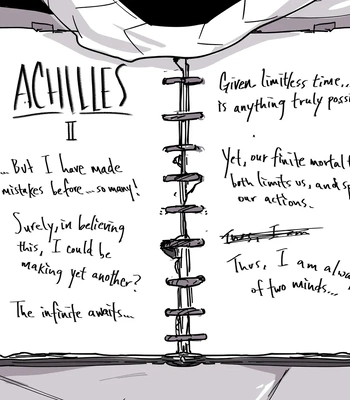 ACHILLES
II
...But I have made
mistakes before...so many!
Surely, in believing
this, I could be
making yet another?
The infinite awaits...
Given limitless time...
is anything truly possi
Yet, our finite mortal
both limits us, and sp
our actions.
Thus, I am
Thus, I am alwa
of two minds...